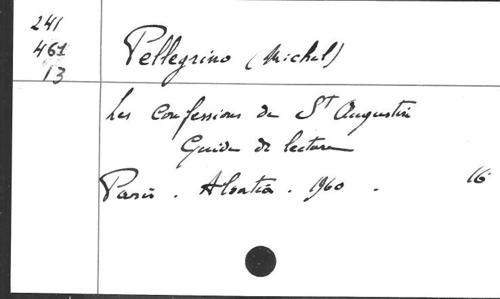 241
461
13
Pellegrino (Michel)
Les confessions de St Augustin
Guide de lecture
Paris . Alsatia . 1960 . 16